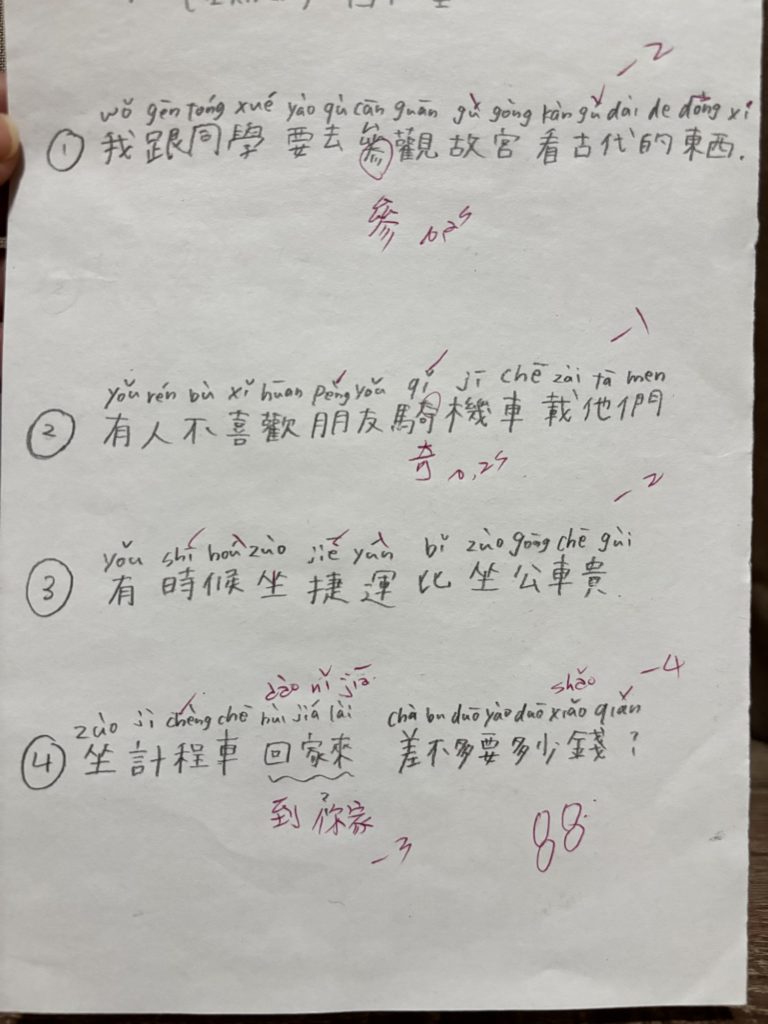 -2
wǒ gēn tóng xué yào qù cān guān gù gōng kàn gǔ dài de dōng xi
① 我跟同學 要去參觀故宮 看古代的東西.
參 0.25
-1
yǒu rén bù xǐ huān péng yǒu qí jī chē zài tā men
② 有人不喜歡朋友騎機車 載他們
奇 0.25
-2
yǒu shí hòu zuò jié yùn bǐ zuò gōng chē guì
③ 有 時候坐 捷運 比 坐公車貴.
dào nǐ jiā shǎo -4
zuò jì chéng chē húi jiā lái chà bu duō yào duō xiǎo qián
④ 坐計程車 回家來 差不多要多少錢?
到你家 88
-3